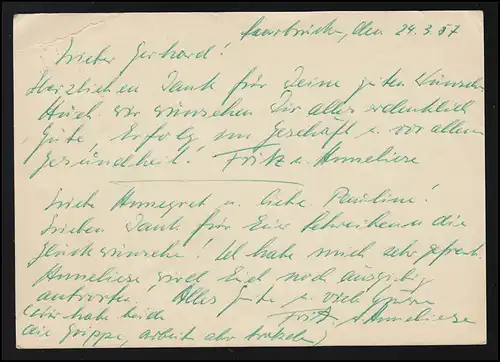 Saarbrücken, den 24.3.57
Lieber Gerhard!
Herzlichen Dank für Deine guten Wünsche
Auch wir wünschen Dir alles erdenklich
Gute, Erfolg im Geschäft u. vor allem
Gesundheit! Fritz u. Anneliese
Liebe Annegret u. liebe Pauline!
Lieben Dank für Euer Schreiben u. die
Glückwünsche! Ich habe mich sehr gefreut.
Anneliese wird Euch noch ausgiebig
antworten! Alles Gute u. viele Grüße
(Wir haben beide Fritz u. Anneliese
die Grippe, arbeiten aber trotzdem)